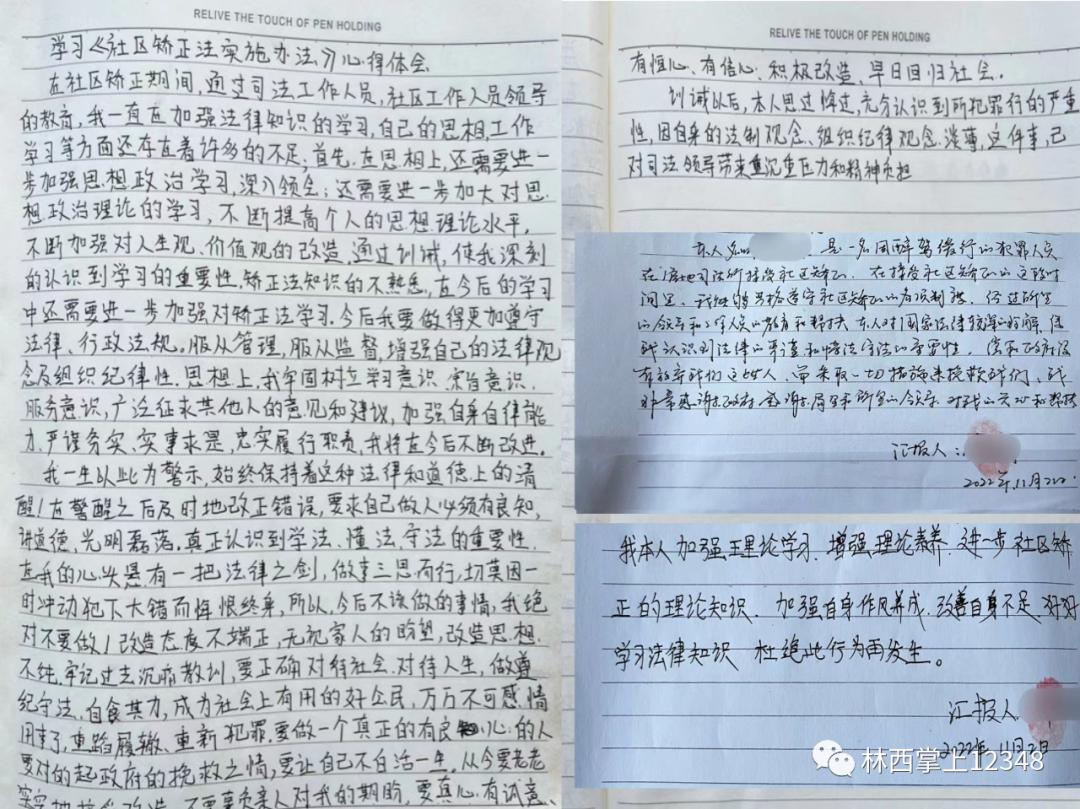 RELIVE THE TOUCH OF PEN HOLDING
学习《社区矫正法实施办法》心得体会
在社区矫正期间,通过司法工作人员,社区工作人员领导
的教育,我一直在加强法律知识的学习,自己的思想,工作
学习等方面还存在着许多的不足;首先,在思想上,还需要进一
步加强思想政治学习,深入领会;还需要进一步加大对思
想政治理论的学习,不断提高个人的思想理论水平,
不断加强对人生观、价值观的改造,通过训诫,使我深刻
的认识到学习的重要性,矫正法知识的不熟悉,在今后的学习
中还需要进一步加强对矫正法学习.今后我要做得更加遵守
法律、行政法规。服从管理,服从监督,增强自己的法律观
念及组织纪律性.思想上,我牢固树立学习意识、宗旨意识.
服务意识,广泛征求其他人的意见和建议,加强自身自律能
力、严谨务实、实事求是,忠实履行职责,我将在今后不断改进。
我一生以此为警示,始终保持着这种法律和道德上的清
醒!在警醒之后及时地改正错误,要求自己做人必须有良知,
讲道德,光明磊落.真正认识到学法、懂法,守法的重要性.
在我的心头悬有一把法律之剑,做事三思而行,切莫因一
时冲动犯下大错而悔恨终身,所以,今后不该做的事情,我绝
对不要做!改造态度不端正,无视家人的盼望,改造思想.
不纯.牢记过去沉痛教训,要正确对待社会.对待人生,做遵
纪守法、自食其力,成为社会上有用的好公民,万万不可感情
用事了,重蹈履辙、重新犯罪.要做一个真正的有良知心的人
要对的起政府的挽救之情,要让自己不白活一生.从今要老老
实实地接受改造.不要辜负亲人对我的期盼,要真心.有诚意、
RELIVE THE TOUCH OF PEN HOLDING
有恒心、有信心;积极改造、早日回归社会.
训诫以后,本人思过悔过,充分认识到所犯罪行的严重
性,因自身的法制观念、组织纪律观念.淡薄,这件事,已
对司法领导带来重沉重压力和精神负担
本人 是一名因醉驾缓行的犯罪人员
在 司法所接受社区矫正.在接受社区矫正的这段时
间里,我能够严格遵守社区矫正的有关制度.经过所里
的领导和工作人员的教育和帮扶 本人对国家法律 的 解,使
我认识到法律的严肃和懂法守法的重要性.党和政府没
有放弃我们这些人、而采取一切措施来挽救我们、我
非常感谢政府感谢局里所里的领导 对我的关心和帮扶
汇报人:
2022年11月2日
我本人加强王理论学习.增强理论素养 进一步社区矫
正的理论知识.加强自身作风养成.改善自身不足 好好
学习法律知识 杜绝此行为再发生。
汇报人
2022年11月2日
林西掌上12348